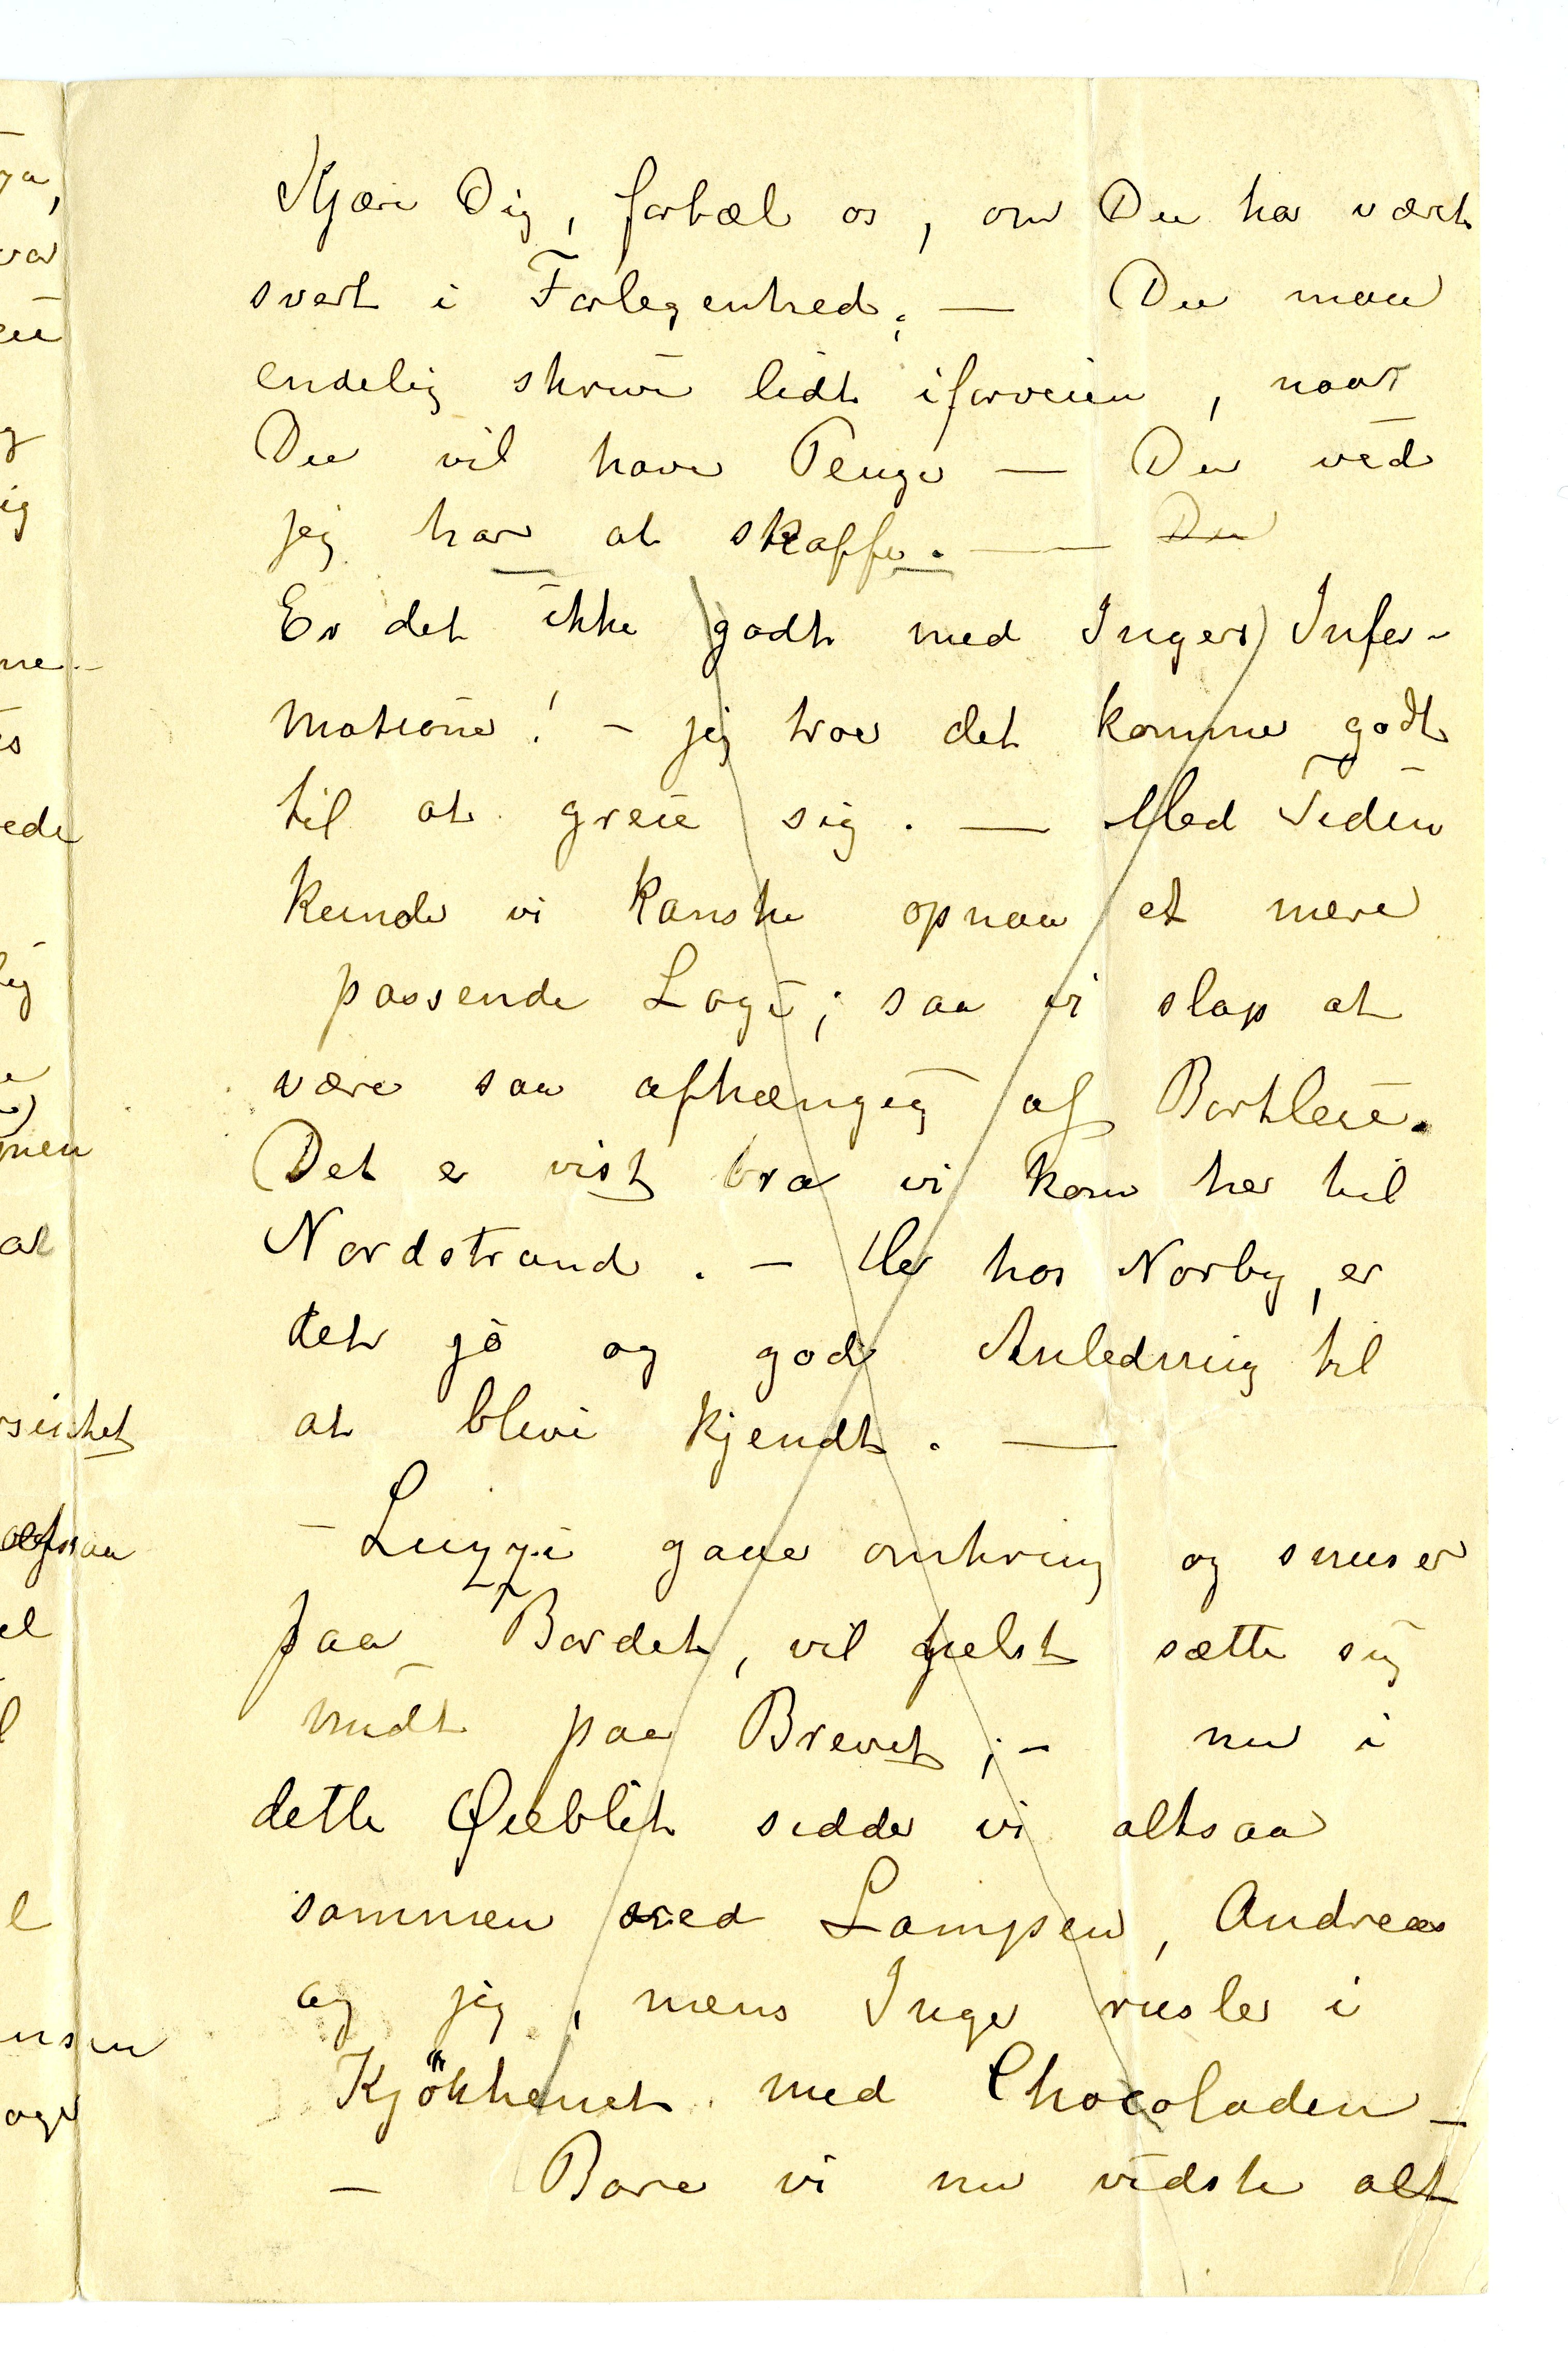 Kjære Dig, fortæl os, om Du har vært
svært i Forlegenhed; — Du maa
endelig skrive lidt iforveien, naar
Du vil have Penge — Du ved
jeg har at skaffe. — — Du
Er det ikke godt med Ingers Infor-
mationer! – jeg troer det kommer godt
til at greie sig. — Med Tiden
kunde vi kanske opnaa et mere
passende Logi; saa vi slap at
være saa afhængig af Bortleie.
Det er vist bra vi kom her til
Nordstrand. – Her hos Norby, er
det jo og god Anledning til
at blive kjendt. —
– Luzzi gaaer omkring og snuser
paa Bordet, vil helst sætte sig
midt paa Brevet; – nu i
dette Øieblik sidder vi altsaa
sammen ved Lampen, Andreas
og jeg, mens Inger rusler i
Kjökkenet med Chocoladen —
– Bare vi nu vidste alt